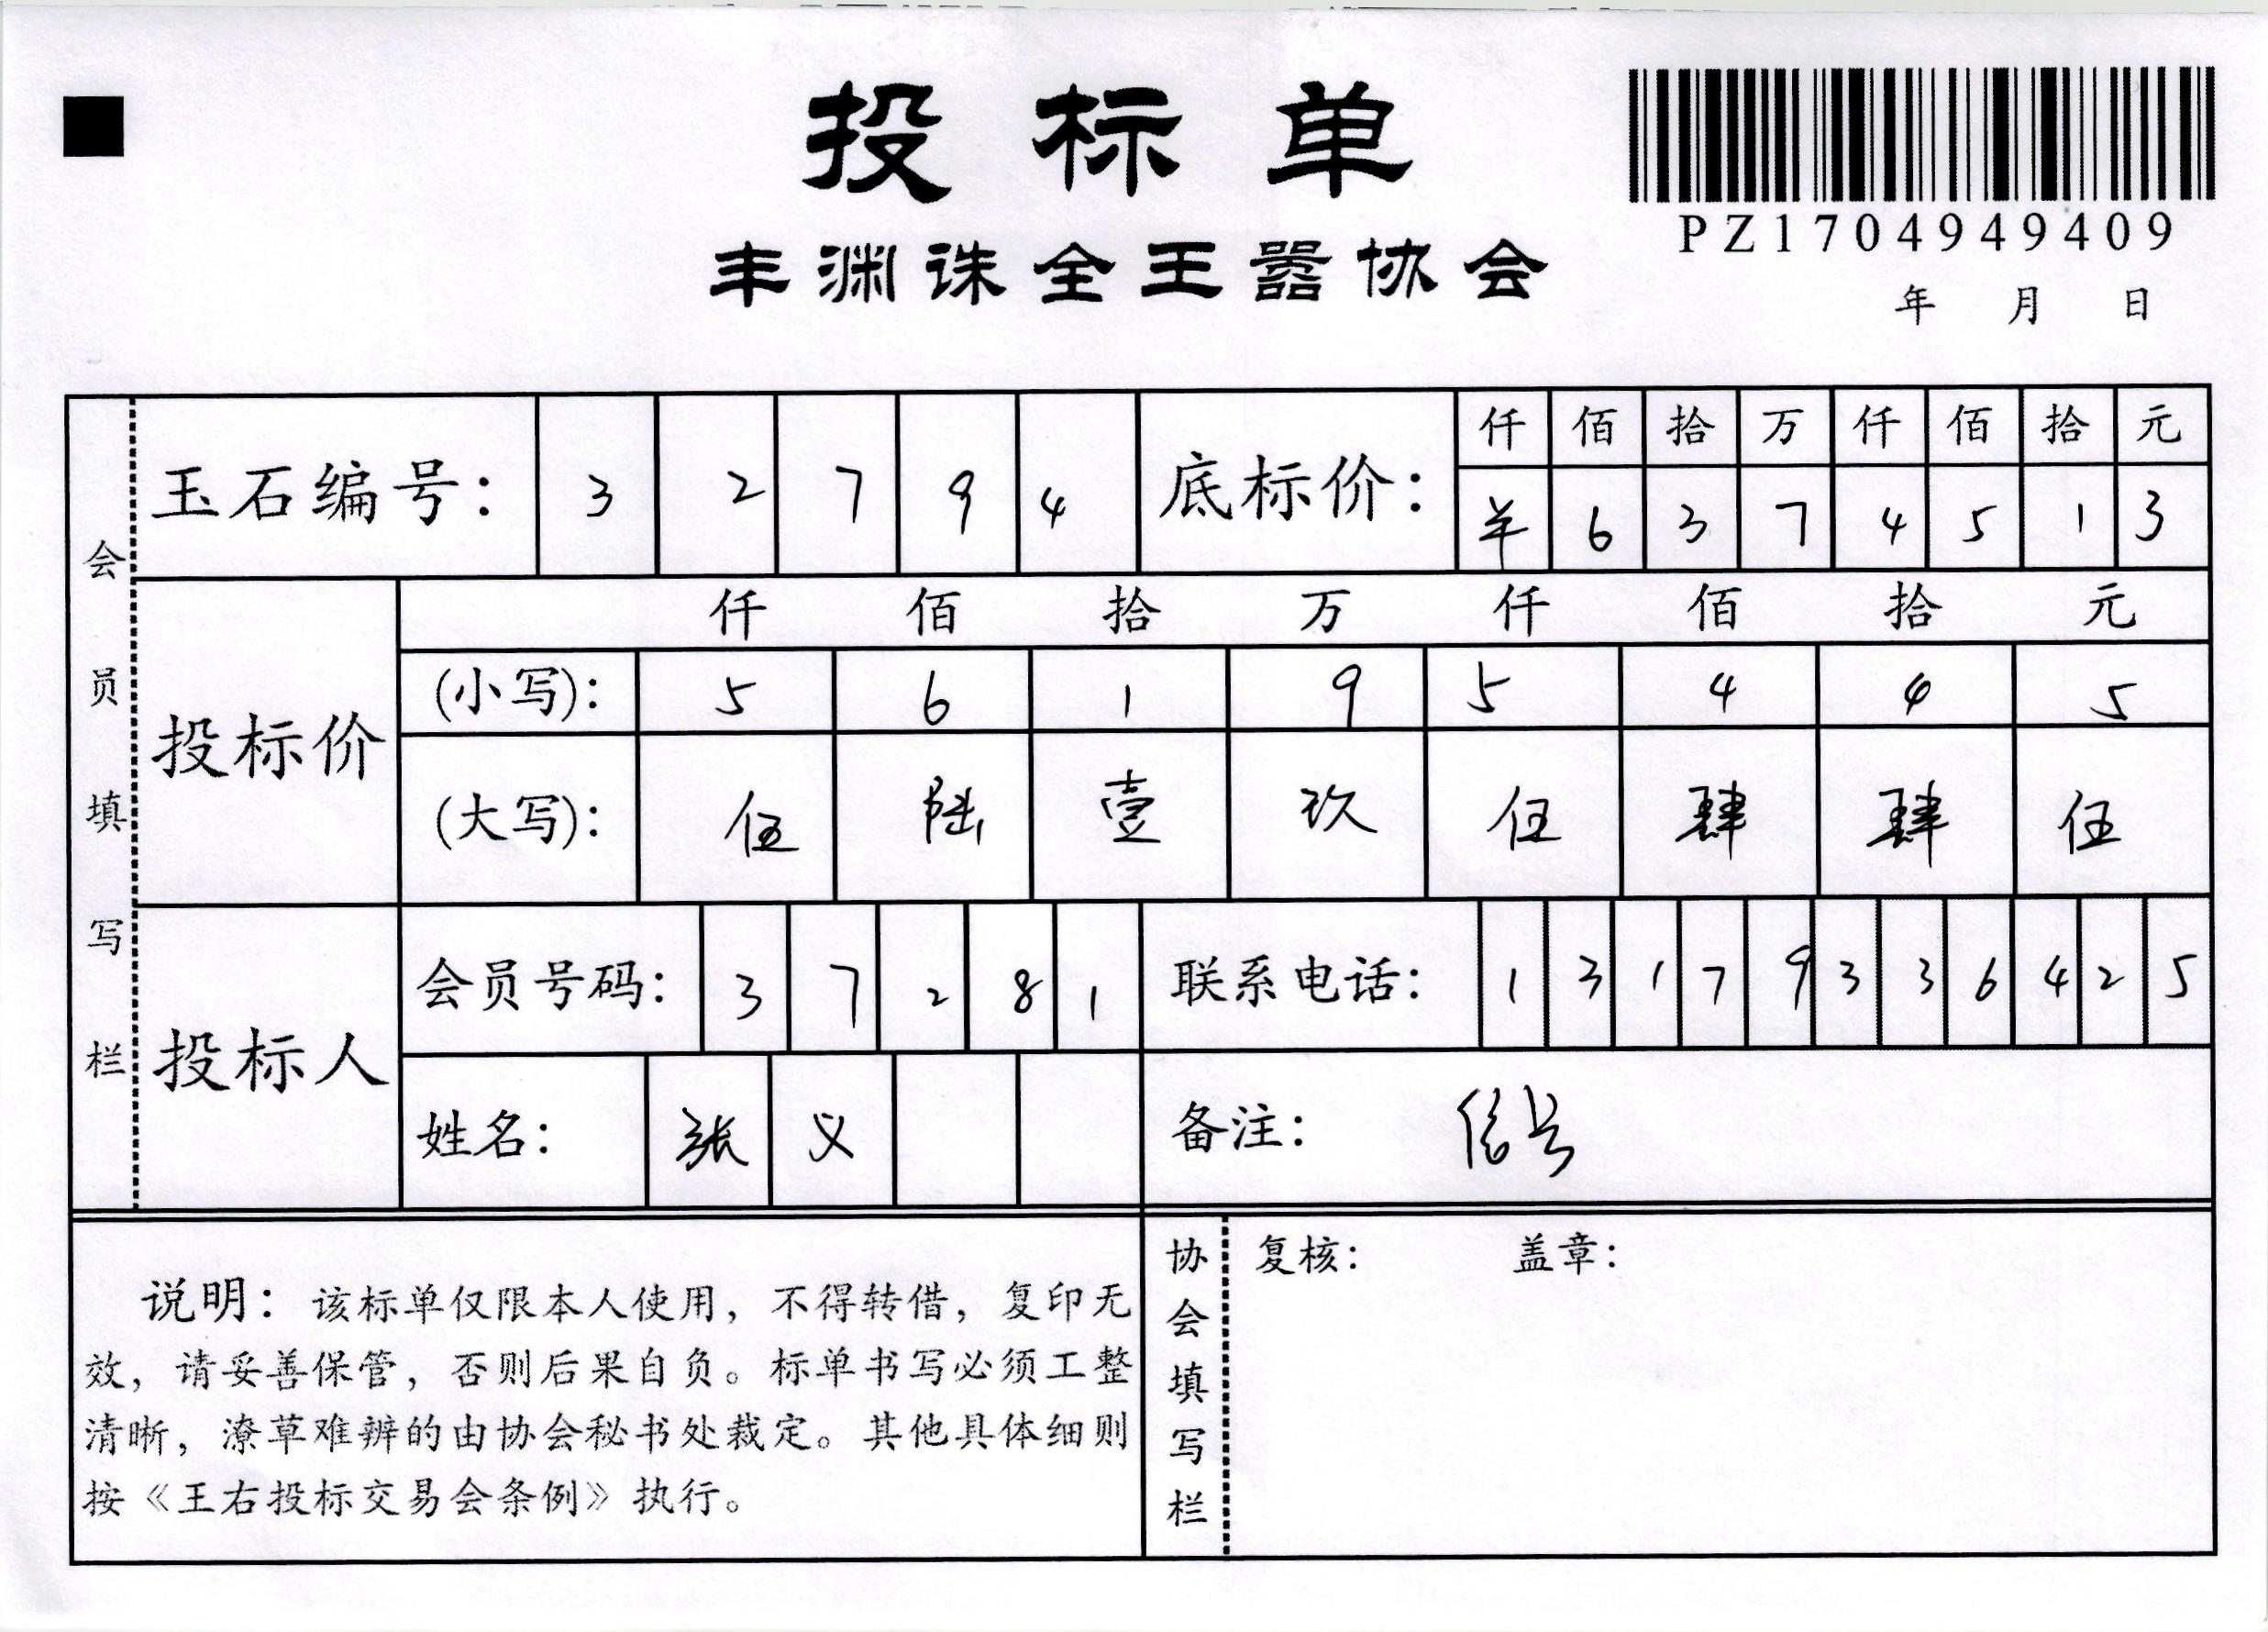 投标单
PZ1704949409
丰渊诛全王嚣协会
年 月 日
会员填写栏
玉石编号： 3 2 7 9 4
底标价： 仟 佰 拾 万 仟 佰 拾 元
羊 6 3 7 4 5 1 3
投标价
仟 佰 拾 万 仟 佰 拾 元
(小写)： 5 6 1 9 5 4 4 5
(大写)： 伍 陆 壹 玖 伍 肆 肆 伍
投标人
会员号码： 3 7 2 8 1
联系电话： 1 3 1 7 9 3 3 6 4 2 5
姓名： 张 义
备注： 信号
说明：该标单仅限本人使用，不得转借，复印无
效，请妥善保管，否则后果自负。标单书写必须工整
清晰，潦草难辨的由协会秘书处裁定。其他具体细则
按《王右投标交易会条例》执行。
协会填写栏
复核： 盖章：